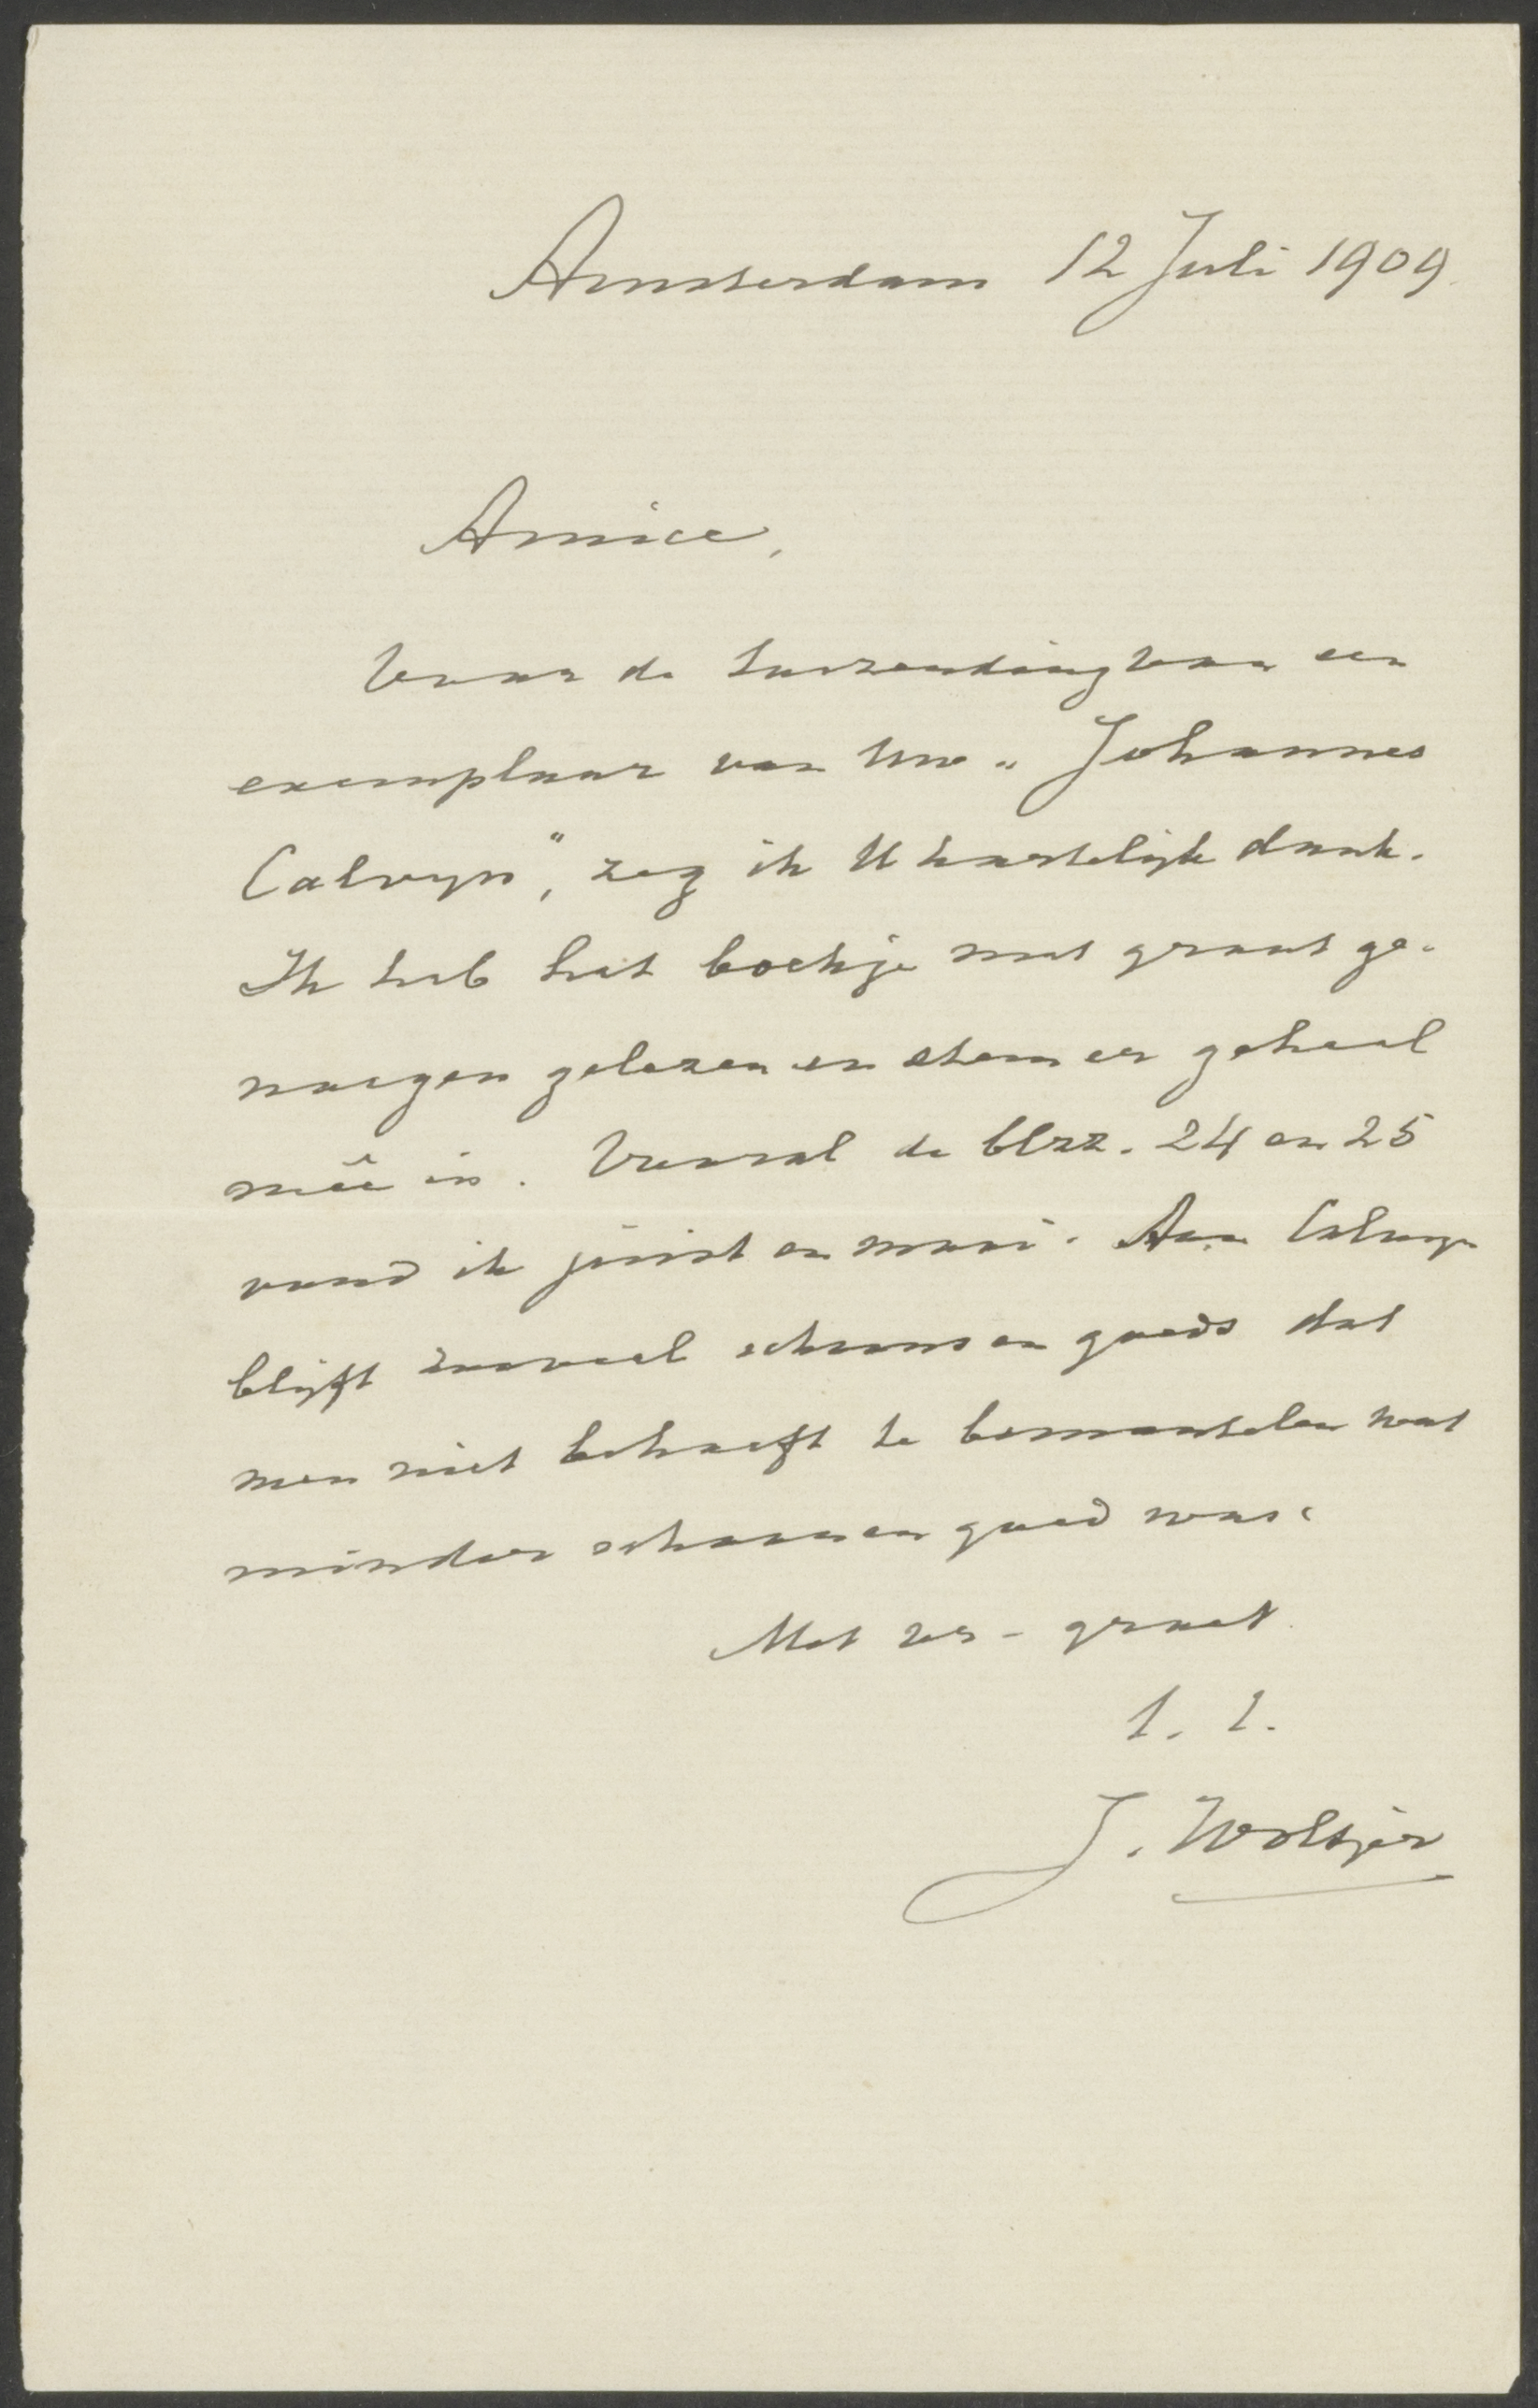 Amsterdam 12 Juli 1909.
Amice,
Voor de toezending van een
exemplaar van Uw „Johannes
Calvyn", zeg ik U hartelijk dank.
Ik heb het boekje met groot ge-
noegen gelezen en stem er geheel
meê in. Vooral de blzz. 24 en 25
vond ik juist en mooi. Aan Calvyn
blijft zooveel schoons en goeds dat
men niet behoeft te bemantelen wat
minder schoon en goed was.
Met br. groet.
t. t.
J. Woltjer